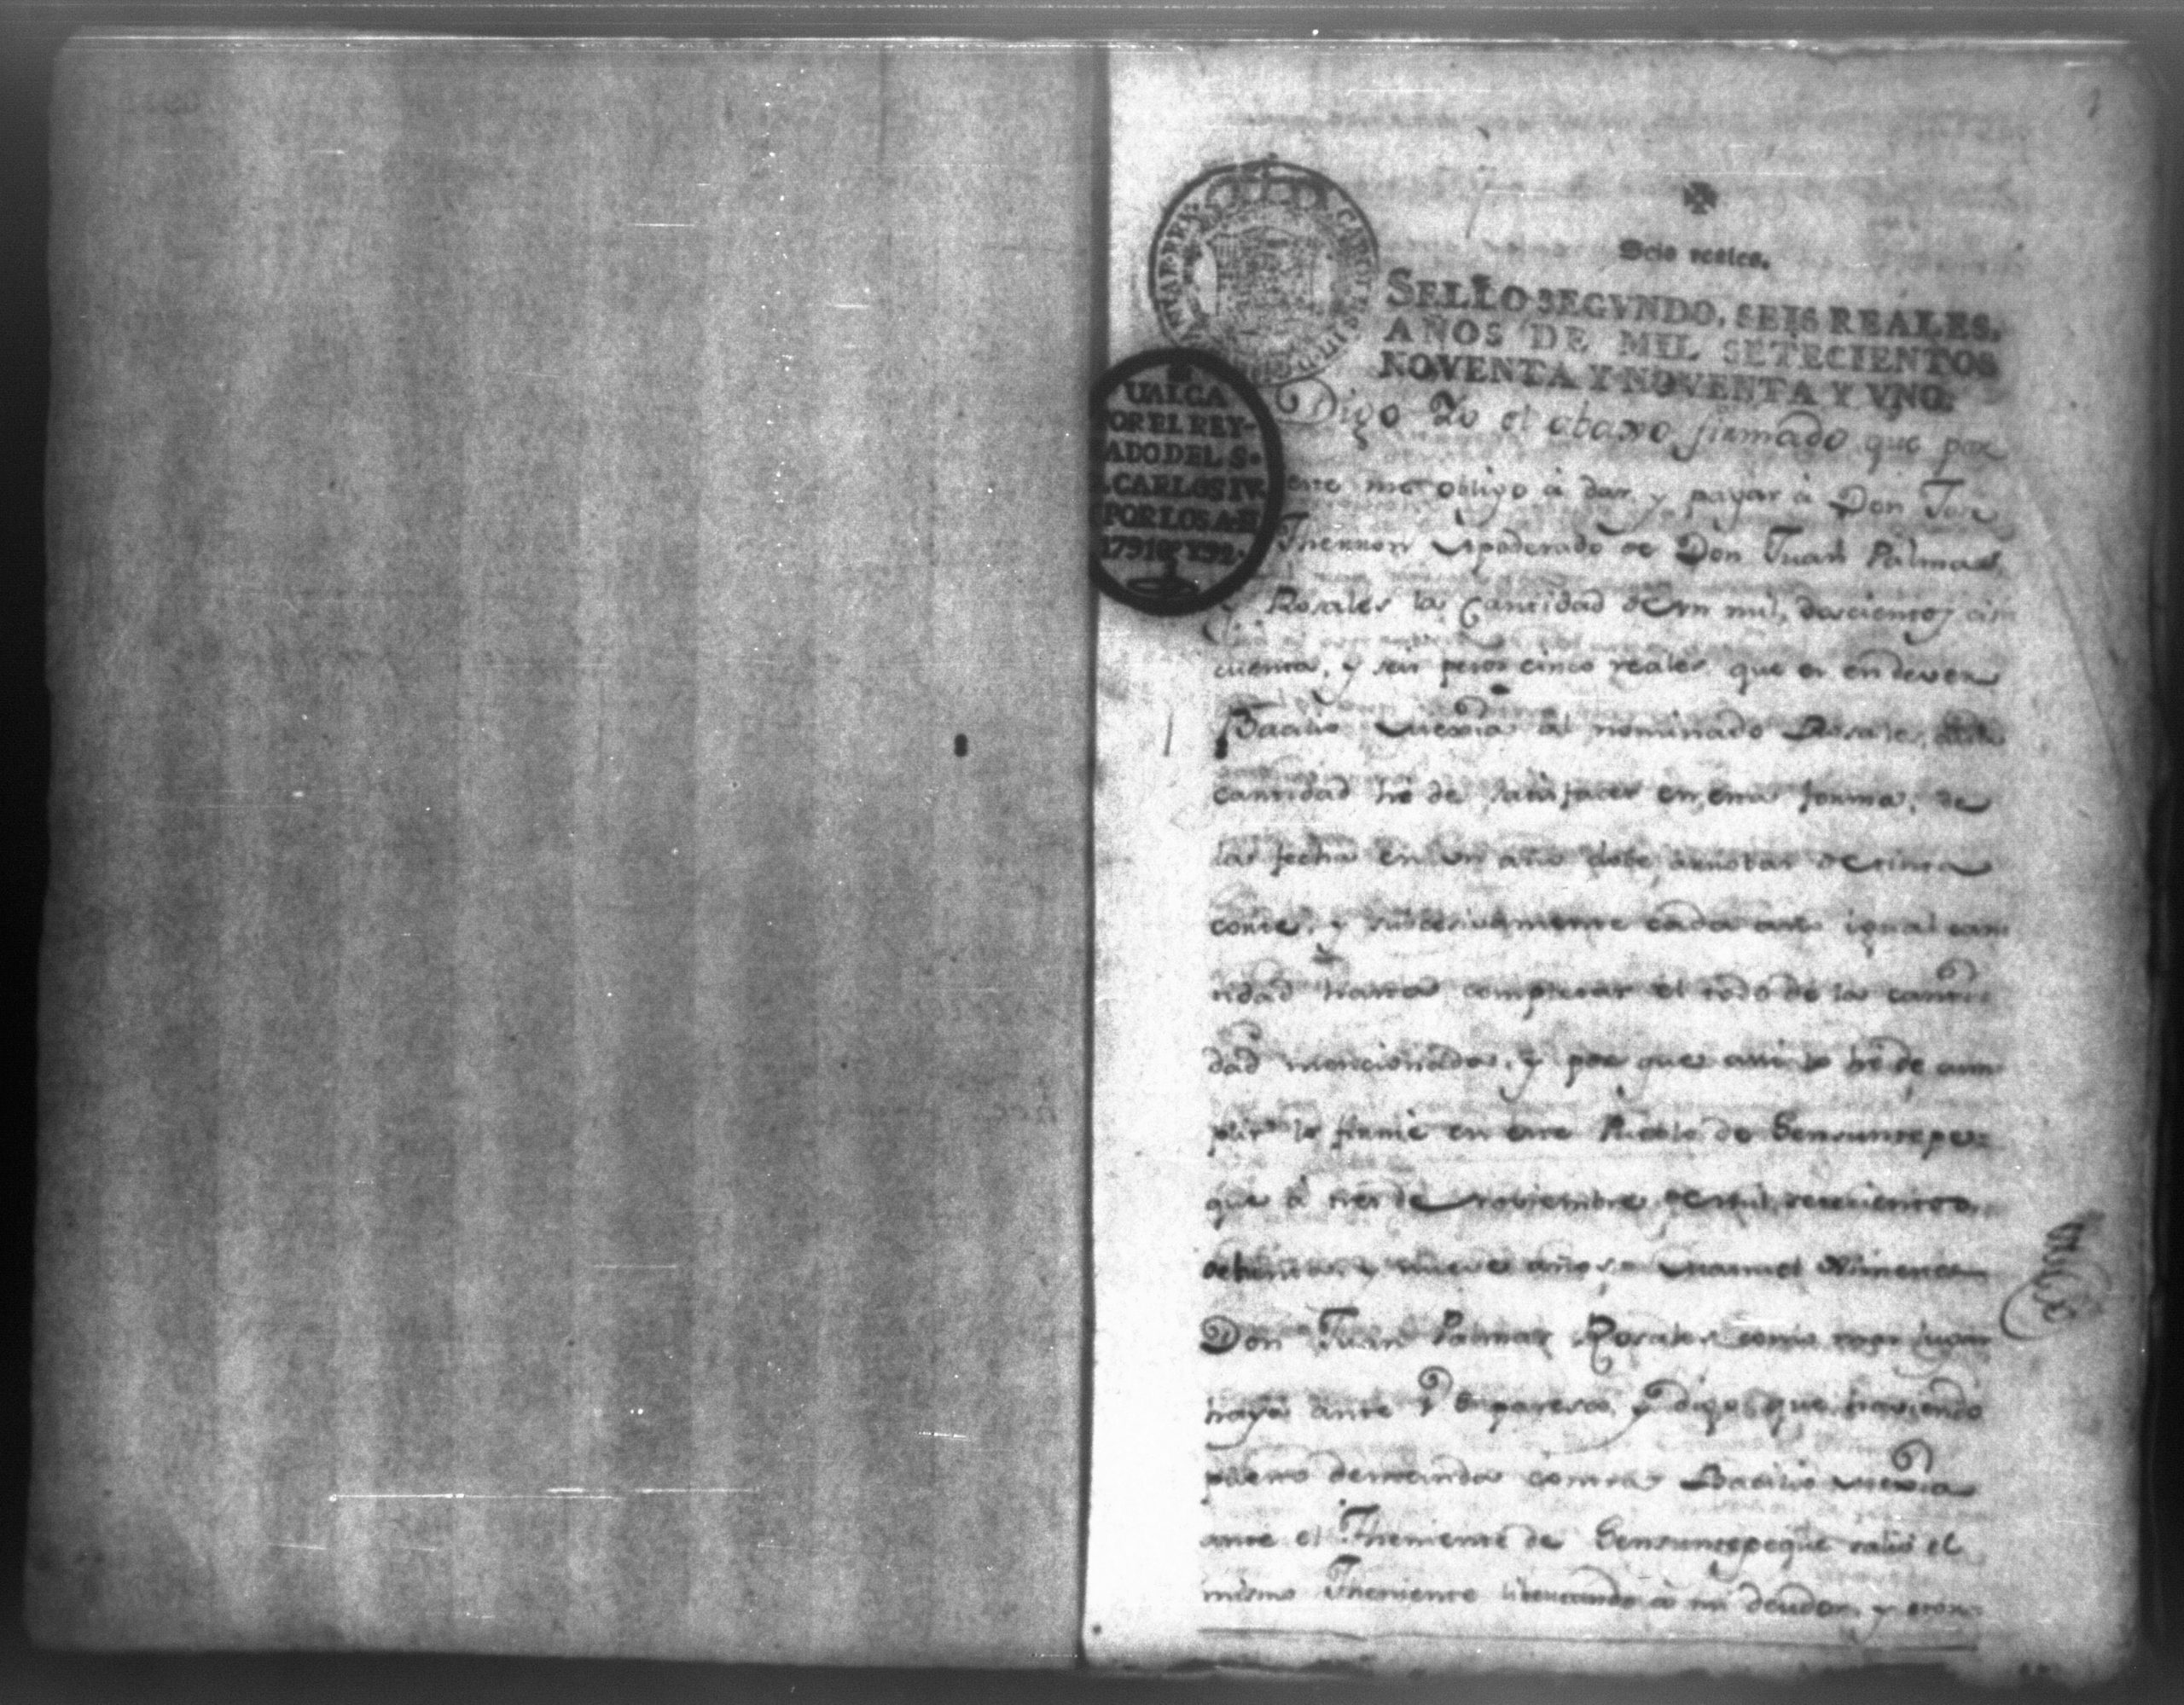 Seis reales.
SELLO SEGVNDO, SEIS REALES,
AÑOS DE MIL SETECIENTOS
NOVENTA Y NOVENTA Y VNO.
UALGA
OR EL REY-
ADO DEL S.
CARLOS IV.
POR LOS A
1791 Y 92.
Digo Yo el abaxo firmado que por
este me obligo à dar y pagar à Don
Therron Apoderado de Don Juan Palmas
y Rosales la Cantidad de un mil, doscientos cin
cuenta, y seis pesos cinco reales que es en dever
Bacilio Mexia al nominado Rosales,
cantidad he de satisfacer en esta forma, de
la fecha en un año dose arrobas de tinta
corte, y subcesivamente cada año igual can
tidad hasta completar el todo de la canti
dad mencionada, y por que assi lo he de cum
plir lo firmé en este Pueblo de Sensuntepe
que à tres de Noviembre de mil setecientos
ochenta y nueve años Manuel Ximenes
Don Juan Palmas Rosales como mas lugar
haya ante V comparesco, y digo que haviendo
puesto demanda contra Bacilio Mexia
ante el Theniente de Sensuntepeque salió el
mismo Theniente libertando à mi deudor, y